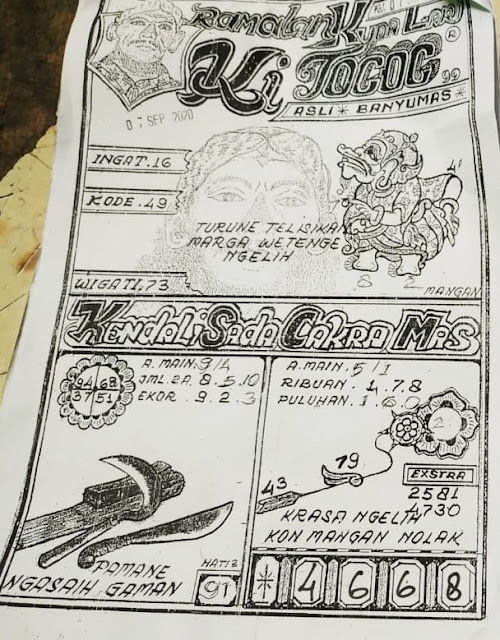 Ramalan Kuda Lari
Ki Togog
ASLI * BANYUMAS *
07 SEP 2020
INGAT.16
KODE.49
TURUNE TELISIKAN
MARGA WETENGE
NGELIH
8 2
MANGAN
WIGATI.73
Kendali Sada Cakra Mas
A.MAIN.9/4
JML.2A.8.5.10
EKOR.9.2.3
94 68
37 51
PAMANE
NGASAIH GAMAN
HATI2
91
A.MAIN.5/1
RIBUAN.4.7.8
PULUHAN.1.6.0
2
19
43
EXSTRA
2581
4730
KRASA NGELIH
KON MANGAN NOLAK
* 4 6 6 8